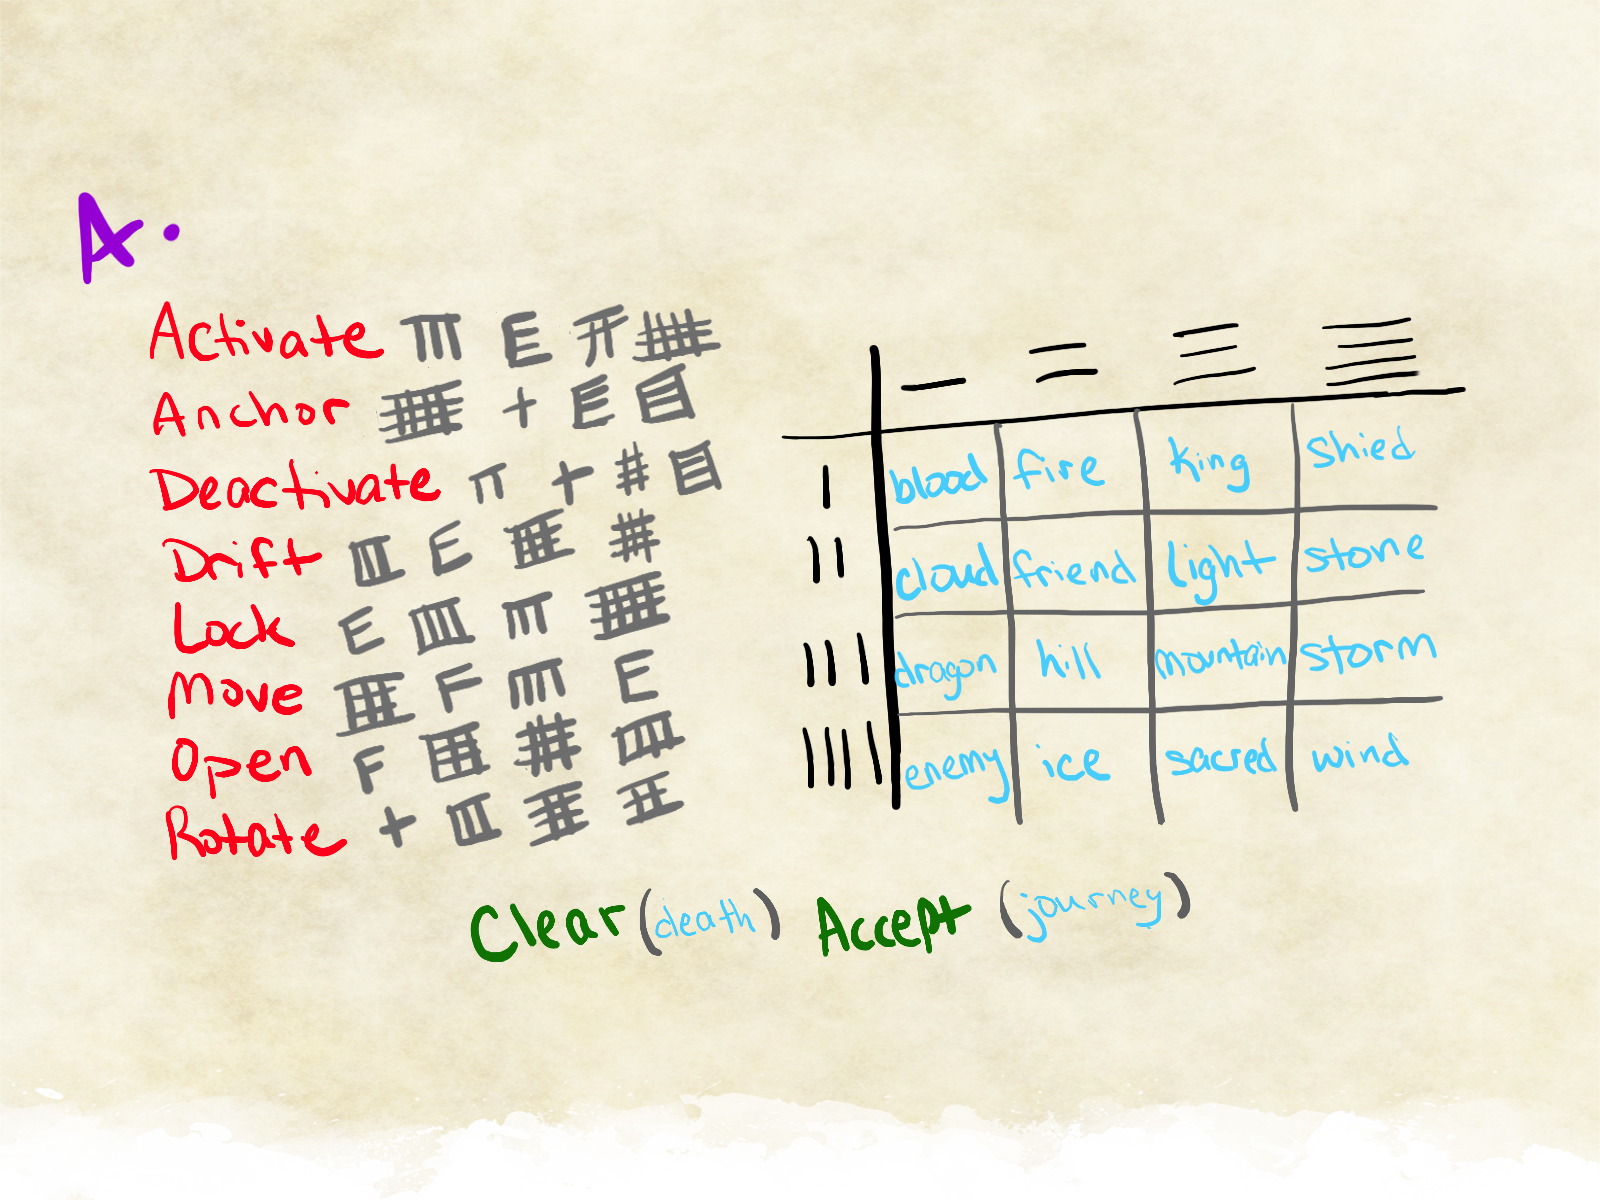 A.
Activate
Anchor
Deactivate
Drift
Lock
Move
Open
Rotate
blood fire king Shied
cloud friend light stone
dragon hill mountain storm
enemy ice sacred wind
Clear (death) Accept (journey)